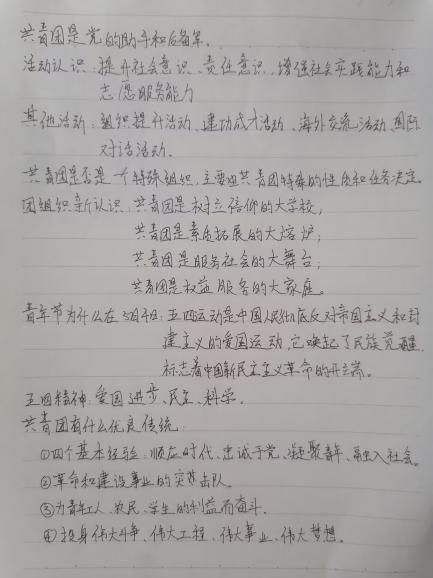 共青团是党的助手和后备军。
活动认识:提升社会意识、责任意识,增强社会实践能力和
志愿服务能力
其他活动:组织提升活动、建功成才活动、海外交流活动、团队
对话活动。
共青团是否是一个特殊组织,主要由共青团特殊的性质和任务决定。
团组织新认识:共青团是树立信仰的大学校,
共青团是素质拓展的大熔炉;
共青团是服务社会的大舞台;
共青团是权益服务的大家庭。
青年节为什么在5月4日:五四运动是中国人民彻底反对帝国主义和封
建主义的爱国运动,它唤起了民族觉醒,
标志着中国新民主主义革命的开端。
五四精神:爱国、进步、民主、科学。
共青团有什么优良传统:
①四个基本经验:顺应时代、忠诚于党、凝聚青年、融入社会。
②革命和建设事业的突击队。
③为青年工人、农民、学生的利益而奋斗。
④投身伟大斗争、伟大工程、伟大事业、伟大梦想。